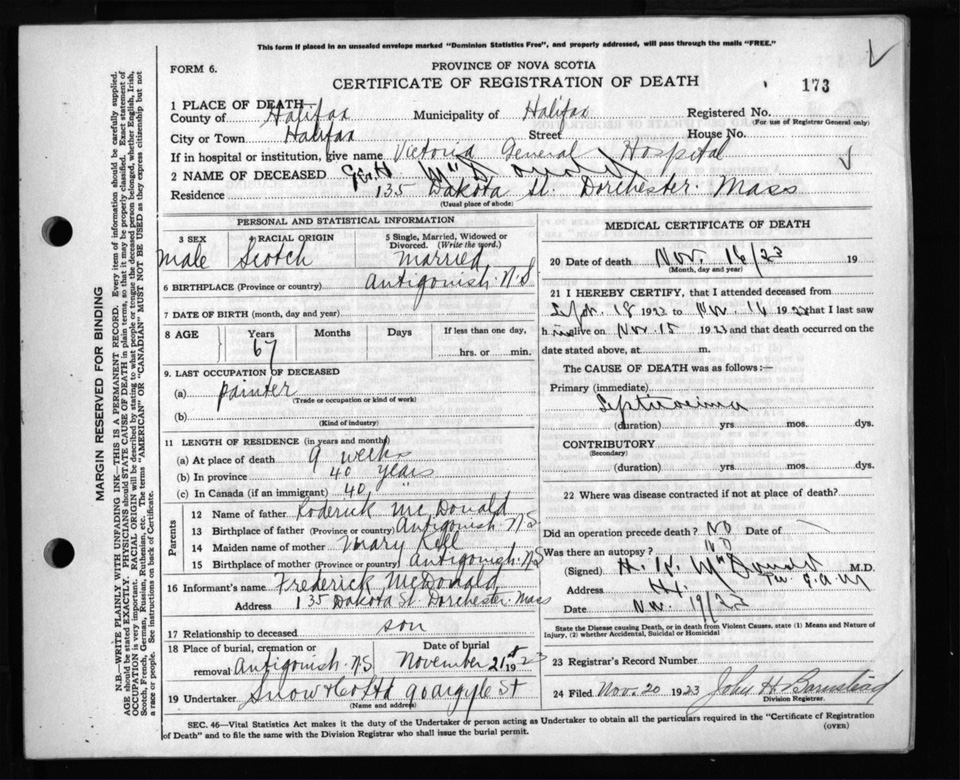 This form if placed in an unsealed envelope marked "Dominion Statistics Free", and properly addressed, will pass through the mails "FREE."
FORM 6.
PROVINCE OF NOVA SCOTIA
CERTIFICATE OF REGISTRATION OF DEATH
173
1 PLACE OF DEATH—
County of Halifax Municipality of Halifax Registered No.
(For use of Registrar General only)
City or Town Halifax Street House No.
If in hospital or institution, give name Victoria General Hospital
2 NAME OF DECEASED McDonald
Residence 135 Dakota St. Dorchester. Mass
(Usual place of abode)
PERSONAL AND STATISTICAL INFORMATION
3 SEX 4 RACIAL ORIGIN 5 Single, Married, Widowed or Divorced. (Write the word.)
Male Scotch married
6 BIRTHPLACE (Province or country) Antigonish. N.S
7 DATE OF BIRTH (month, day and year)
8 AGE Years Months Days If less than one day,
67 hrs. or min.
9. LAST OCCUPATION OF DECEASED
(a) painter
(Trade or occupation or kind of work)
(b)
(Kind of industry)
11 LENGTH OF RESIDENCE (in years and months)
(a) At place of death 9 weeks
(b) In province 40 years
(c) In Canada (if an immigrant) 40 "
Parents
12 Name of father Roderick McDonald
13 Birthplace of father (Province or country) Antigonish. N.S
14 Maiden name of mother Mary
15 Birthplace of mother (Province or country) Antigonish. N.S
16 Informant's name Frederick McDonald
Address 135 Dakota St Dorchester. Mass
17 Relationship to deceased son
18 Place of burial, cremation or removal Date of burial
Antigonish. N.S November 21st 1923
19 Undertaker Snow & Co Ltd 90 Argyle St
(Name and address)
MEDICAL CERTIFICATE OF DEATH
20 Date of death Nov. 16/23 19
(Month, day and year)
21 I HEREBY CERTIFY, that I attended deceased from
Sept. 18 1923 to Nov. 16 1923 that I last saw
him alive on Nov. 15 1923 and that death occurred on the
date stated above, at m.
The CAUSE OF DEATH was as follows:—
Primary (immediate)
(duration) yrs. mos. dys.
CONTRIBUTORY
(Secondary)
(duration) yrs. mos. dys.
22 Where was disease contracted if not at place of death?
Did an operation precede death? No Date of
Was there an autopsy? No
(Signed) H. K. McDonald M.D.
Address Hx.
Date Nov. 19/23
State the Disease causing Death, or in death from Violent Causes, state (1) Means and Nature of Injury, (2) whether Accidental, Suicidal or Homicidal
23 Registrar's Record Number
24 Filed Nov. 20 1923 John H Barnstead
Division Registrar.
SEC. 46—Vital Statistics Act makes it the duty of the Undertaker or person acting as Undertaker to obtain all the particulars required in the "Certificate of Registration
of Death" and to file the same with the Division Registrar who shall issue the burial permit.
(OVER)
MARGIN RESERVED FOR BINDING
N.B.—WRITE PLAINLY WITH UNFADING INK—THIS IS A PERMANENT RECORD. Every item of information should be carefully supplied.
AGE should be stated EXACTLY. PHYSICIANS should STATE CAUSE OF DEATH in plain terms, so that it may be properly classified. Exact statement of
OCCUPATION is very important. RACIAL ORIGIN will be described by stating to what people or tongue the deceased person belonged, whether English, Irish,
Scotch, French, German, Russian, Ruthenian, etc. The terms "AMERICAN" or "CANADIAN" MUST NOT BE USED as they express citizenship but not
a race or people. See instructions on back of Certificate.